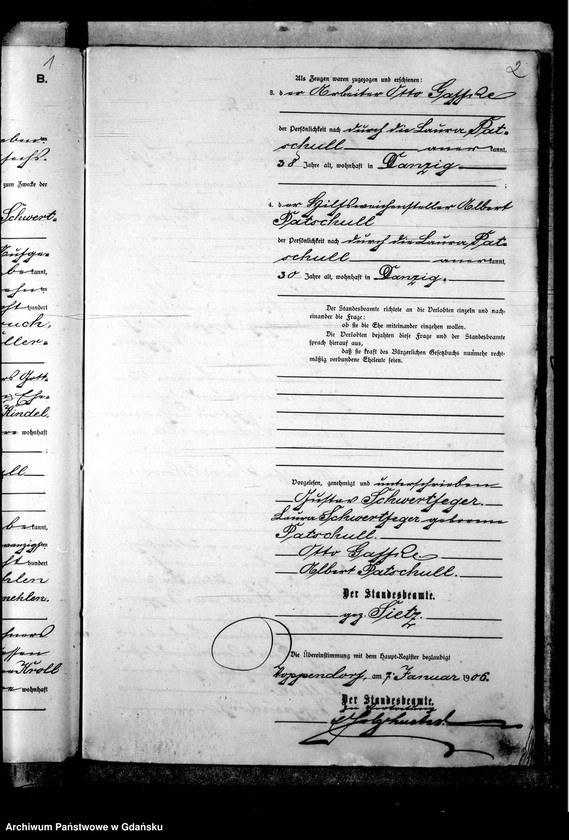 B.
1
2
eben
sechs.
zum Zwecke der
Schwert-
kannt,
hundert
Gott-
Ehe-
Kindel.
wohnhaft
kannt,
hundert
Kroll
wohnhaft
Als Zeugen waren zugezogen und erschienen:
3. der Arbeiter Otto Gaffke
der Persönlichkeit nach durch die Laura Pat-
schull anerkannt,
38 Jahre alt, wohnhaft in Danzig
;
4. der Hilfsweichensteller Albert
Patschull
der Persönlichkeit nach durch die Laura Pat-
schull anerkannt,
30 Jahre alt, wohnhaft in Danzig.
Der Standesbeamte richtete an die Verlobten einzeln und nach-
einander die Frage:
ob sie die Ehe miteinander eingehen wollen.
Die Verlobten bejahten diese Frage und der Standesbeamte
sprach hierauf aus,
daß sie kraft des Bürgerlichen Gesetzbuchs nunmehr recht-
mäßig verbundene Eheleute seien.
Vorgelesen, genehmigt und unterschrieben
Gustav Schwertfeger.
Laura Schwertfeger geborene
Patschull.
Otto Gaffke
Albert Patschull.
Der Standesbeamte.
gez. Tietz.
Die Übereinstimmung mit dem Haupt-Register beglaubigt
am 7. Januar 1906.
Der Standesbeamte.
In Vertretung
Archiwum Państwowe w Gdańsku